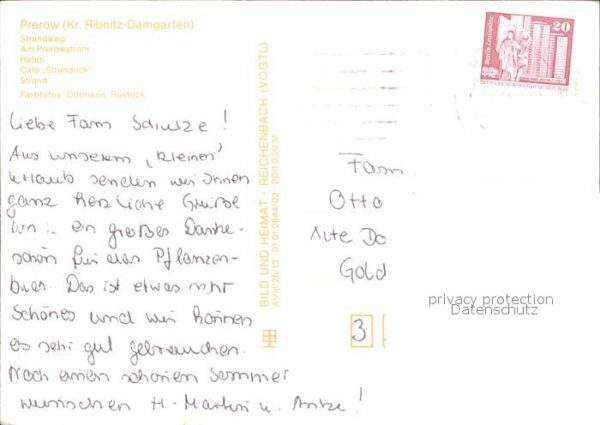 Prerow (Kr. Ribnitz-Damgarten)
Strandweg
Am Prerowstrom
Hafen
Café „Strandeck"
Strand
Farbfotos: Dittmann, Rostock
Liebe Fam Schulze!
Aus unserem „kleinen"
Urlaub senden wir Ihnen
ganz herzliche Grüße
ein großes Danke-
schön für das Pflanzen-
buch. Das ist etwas
Schönes und wir können
es sehr gut gebrauchen.
Noch einen schönen Sommer
wünschen H.-Martin u. !
BILD UND HEIMAT · REICHENBACH (VOGTL)
01 01 0844/03 DDR 0,20 M
20
DEUTSCHE DEMOKRATISCHE REPUBLIK
Fam
Otto
Alte Do
Gold
3
privacy protection
Datenschutz